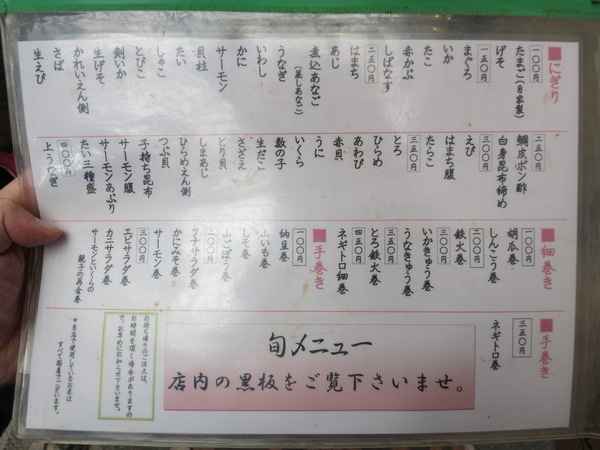 ■にぎり
一〇〇円
たまご(自家製)
げそ
一五〇円
まぐろ
いか
たこ
赤かぶ
しばなす
二五〇円
はまち
あじ
煮込あなご
(蒸しあなご)
うなぎ
いわし
かに
サーモン
貝柱
たい
しゃこ
とびこ
剣いか
生げそ
かれいえん側
さば
生えび
二五〇円
鯛皮ポン酢
白身昆布締め
三〇〇円
えび
はまち腹
たらこ
三五〇円
とろ
ひらめ
あわび
赤貝
うに
いくら
数の子
生だこ
さざえ
とり貝
しまあじ
ひらめえん側
つぶ貝
子持ち昆布
サーモン腹
サーモンあぶり
たい三種盛
四〇〇円
上うなぎ
■細巻き
一〇〇円
胡瓜巻
しんこう巻
二〇〇円
鉄火巻
三〇〇円
いかきゅう巻
うなきゅう巻
三五〇円
とろ鉄火巻
四五〇円
ネギトロ細巻
■手巻き
一〇〇円
納豆巻
山いも巻
しそ巻
山ごぼう巻
二〇〇円
ツナサラダ巻
かにみそ巻
サーモン巻
三〇〇円
エビサラダ巻
カニサラダ巻
サーモンといくらの
親子の再会巻
■手巻き
三五〇円
ネギトロ巻
旬メニュー
店内の黒板をご覧下さいませ。
お持ち帰りのご注文は、
お時間を頂く場合がありますの
で、お早めにお知らせ下さいませ。
*当店で使用しているお米は
すべて国産でございます。